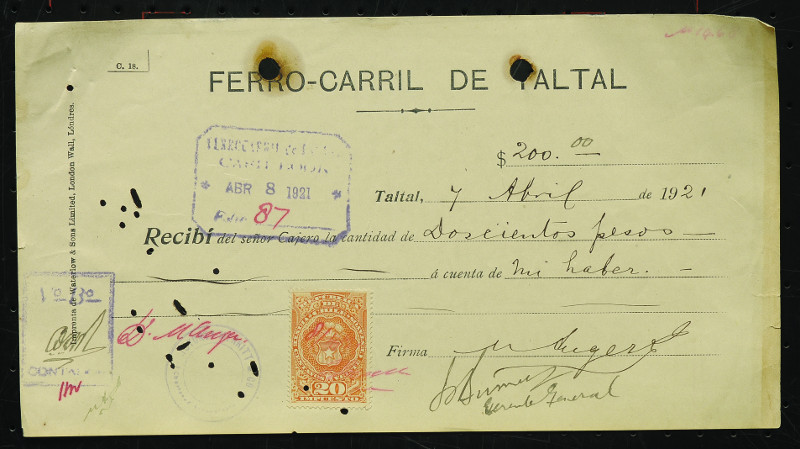 C. 18.
FERRO-CARRIL DE TALTAL
$ 200.00
CASH BOOK
ABR 8 1921
Folio 87
Taltal, 7 Abril de 1921
Recibí del señor Cajero la cantidad de Doscientos pesos
á cuenta de mi haber.
Firma
Gerente General
Imprenta de Waterlow & Sons Limited, London Wall, Lóndres.
CONTADOR
20
IMPUESTO